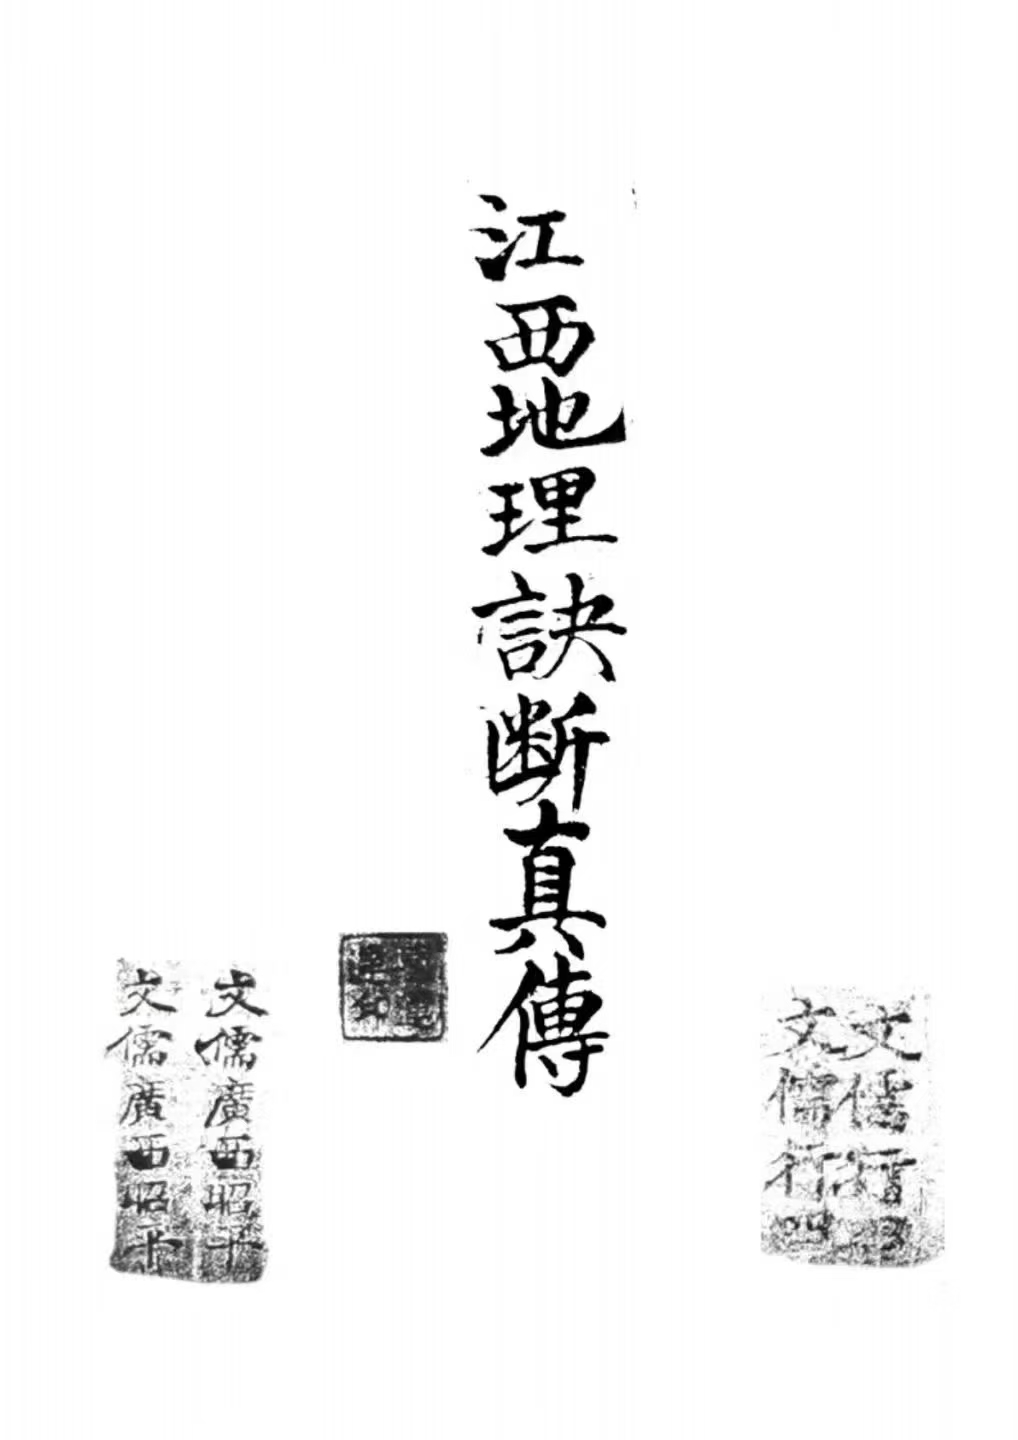 江西地理訣断真傳
文儒行
文儒行
文儒廣西昭平
文儒廣西昭平